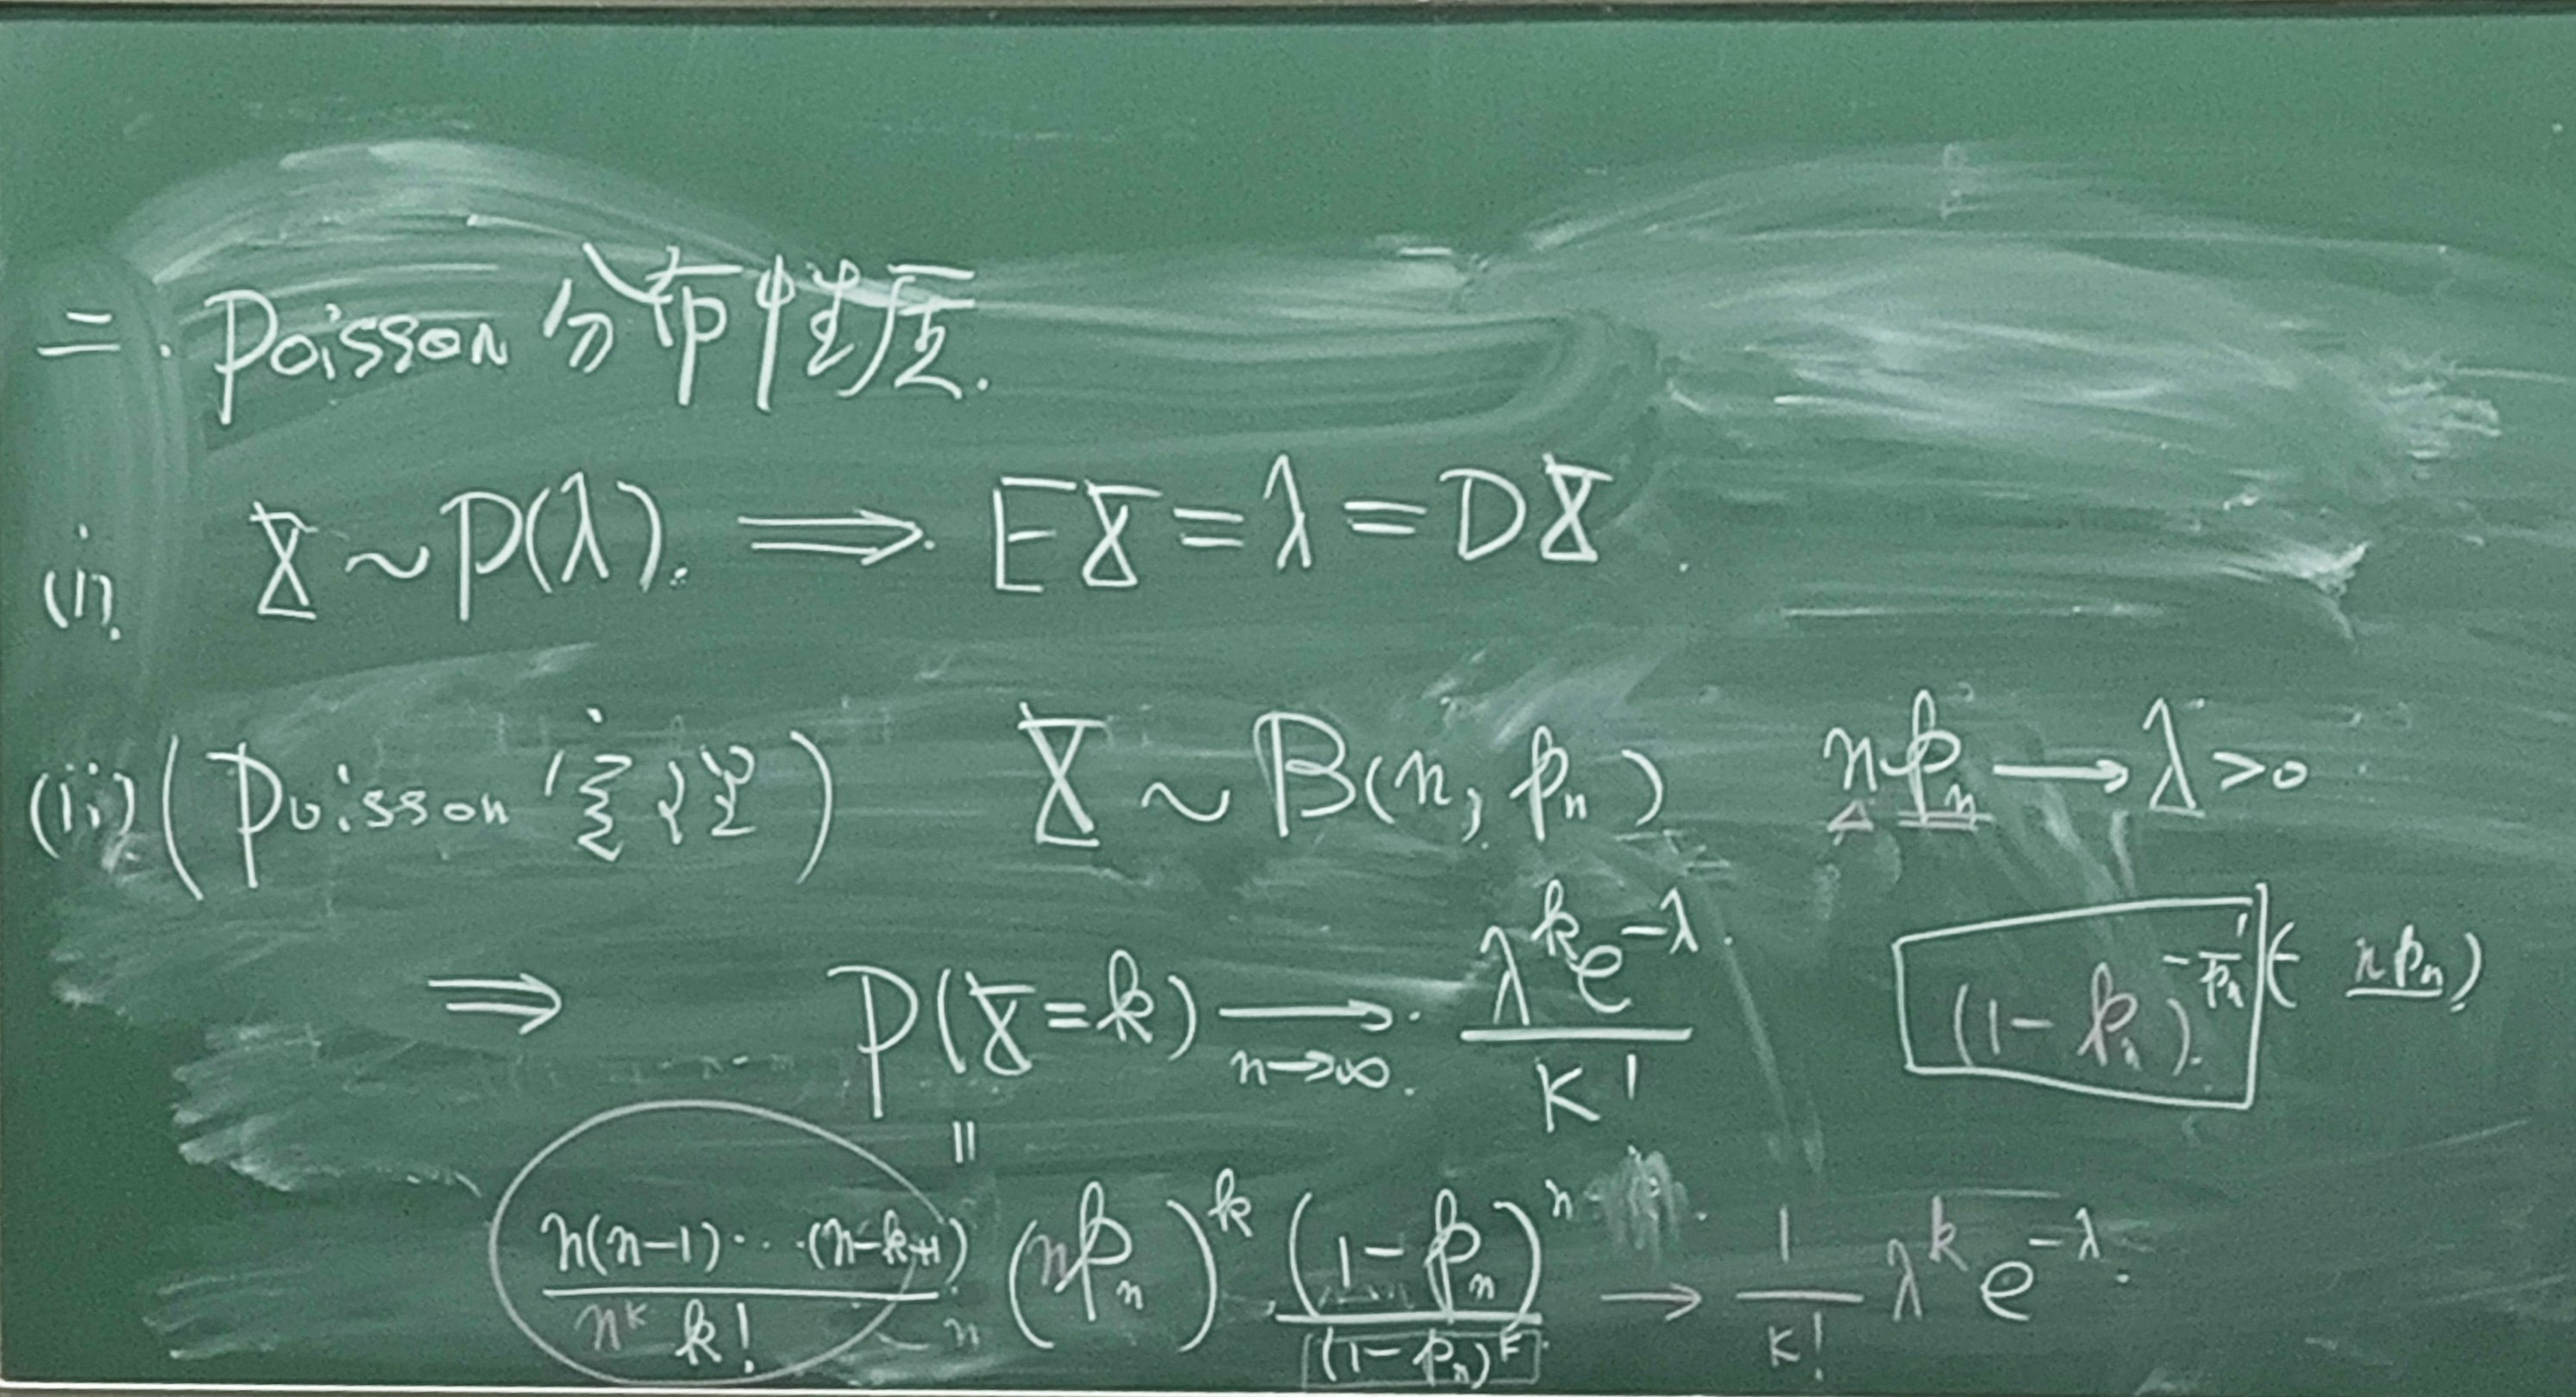 二. Poisson 分布性质.
(i) X ~ P(λ). ⟹ EX = λ = DX.
(ii) (Poisson 定理) X ~ B(n, pₙ) npₙ → λ > 0
⟹ P(X=k) →_{n→∞} λ^k e^{-λ} / k! (1-pₙ)^{-1/pₙ (-npₙ)}
||
n(n-1)···(n-k+1) / n^k k! (npₙ)^k (1-pₙ)^n / (1-pₙ)^k → 1/k! λ^k e^{-λ}.